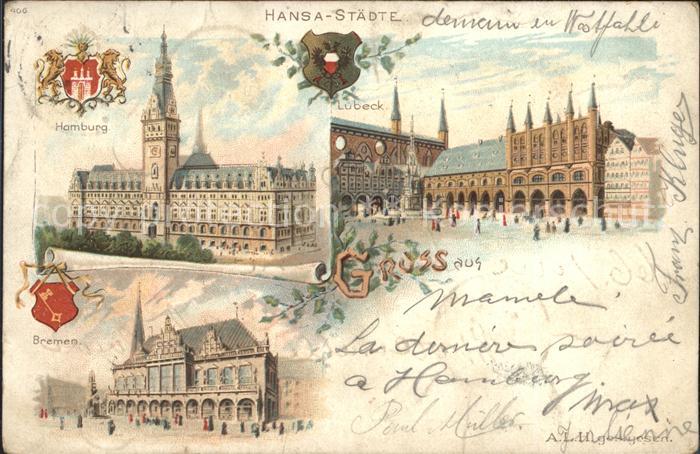 406
HANSA-STÄDTE.
demain en Westfahle
Hamburg.
Lübeck.
Franz Klinger
GRUSS aus
Bremen.
Mamele!
La dernére soirée
a Hamburg
Max
Paul Müller.
A.L.H.